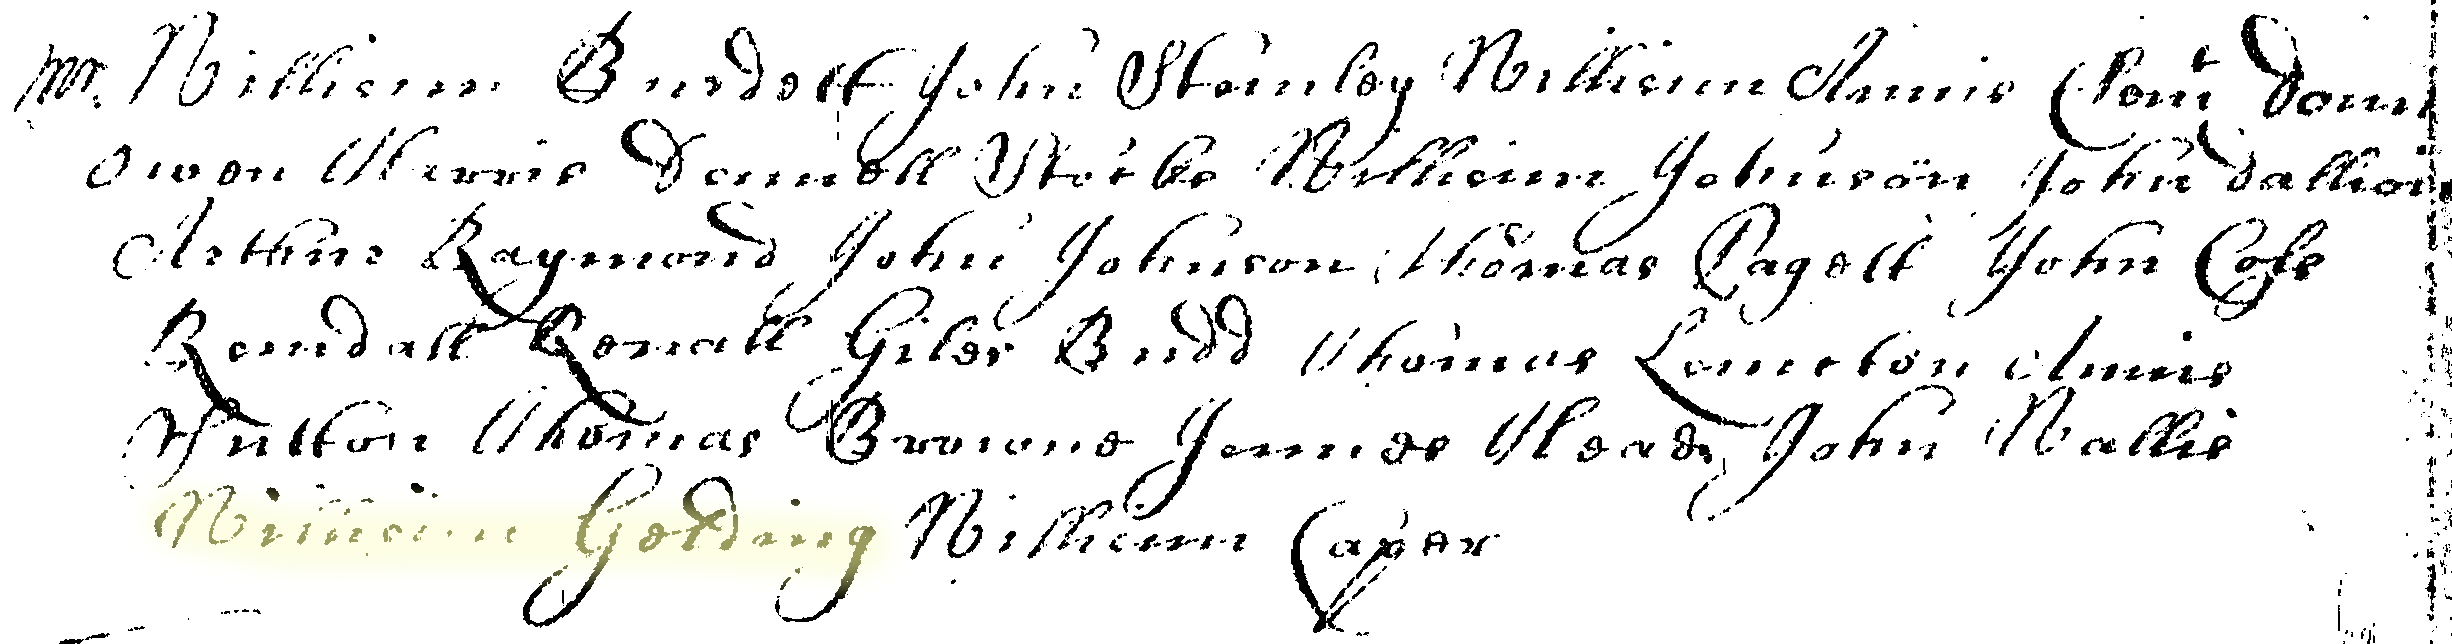 Mr. William Burdett John Stanley William Annis Cle͠mt Dann
Owen Harris Daniell Stocks William Johnson John dallion
Arthur Raymond John Johnson Thomas Pagett John Cole
Rendall Renall Giles Budd Thomas Lameton Annis
Sutton Thomas Browne James Heade John Wallis
William Golding William Caper